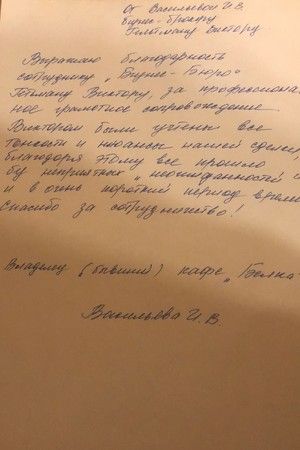 От Васильевой И.В.
Бизнес-брокеру
Гетьману Виктору
Выражаю благодарность
сотруднику „Бизнес-Бюро"
Гетьману Виктору, за профессиональ
ное грамотное сопровождение.
Виктором были учтены все
тонкости и нюансы нашей сделки,
благодаря этому все прошло
без неприятных „неожиданностей"
и в очень короткий период време
Спасибо за сотрудничество!
Владелец (бывший) кафе „Белка
Васильева И.В.